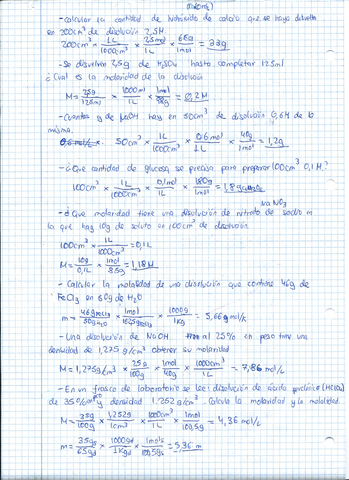 -Calcular la cantidad de hidróxido de calcio que se haya disuelta
en 200cm³ de disolución 2,5M.
200cm³ × 1L/1000cm³ × 2,5mol/1L × 66g/1mol = 33g
- Se disuelven 2,5g de H₂SO₄ hasta completar 125ml
¿Cual es la molaridad de la disolución
M = 2,5g/125ml × 1000ml/1L × 1mol/98g = 0,2M
- Cuantos g de NaOH hay en 50cm³ de disolución 0,6M de la
misma.
50cm³ × 1L/1000cm³ × 0,6mol/1L × 40g/1mol = 1,2g
-¿Que cantidad de glucosa se precisa para preparar 100cm³ 0,1M?
100cm³ × 1L/1000cm³ × 0,1mol/1L × 180g/1mol = 1,8g
NaNO₃
-¿Que molaridad tiene una disolución de nitrato de sodio en
la que hay 10g de soluto en 100cm³ de disolución
100cm³ × 1L/1000cm³ = 0,1L
M = 10g/0,1L × 1mol/85g = 1,18M
- Calcular la molalidad de una disolución que contiene 46g de
FeCl₃ en 50g de H₂O
m = 46g FeCl₃/50g H₂O × 1mol/162,5g FeCl₃ × 1000g/1kg = 5,66 mol/kg
- Una disolución de NaOH al 25% en peso tiene una
densidad de 1,275 g/cm³ obtener su molaridad
M = 1,275g/cm³ × 25g/100g × 1mol/40g × 1000cm³/1L = 7,96 mol/L
- En un frasco de laboratorio se lee: disolución de ácido perclórico (HClO₄)
de 35% en peso y densidad 1.252 g/cm³. Calcula la molaridad y la molalidad.
M = 35g/100g × 1,252g/1cm³ × 1000cm³/1L × 1mol/100,5g = 4,36 mol/L
m = 35gs/65gd × 1000gd/1Kgd × 1mols/100,5gs = 5,36 m